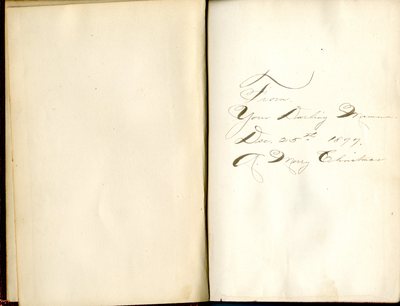 From
Your Darling Mamma.
Dec. 25th 1877.
A. Merry Christmas